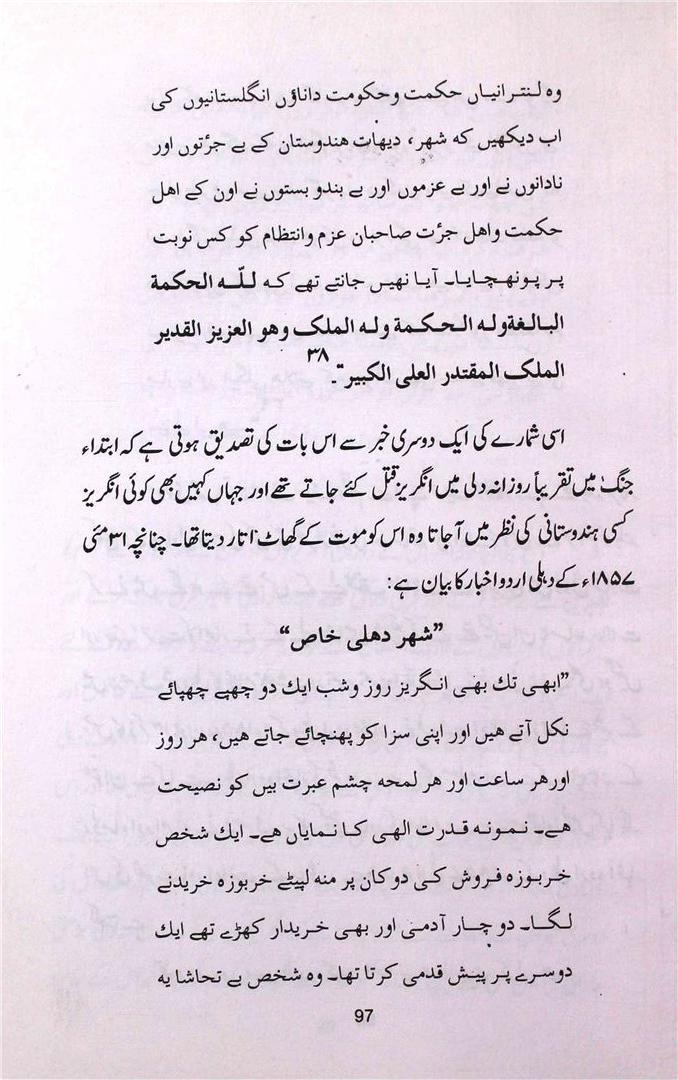 وہ لنترانیاں حکمت وحکومت داناؤں انگلستانیوں کی
اب دیکھیں کہ شہر، دیہات ہندوستان کے بے جرٔتوں اور
نادانوں نے اور بے عزموں اور بے بندو بستوں نے اون کے اھل
حکمت واھل جرٔت صاحبان عزم وانتظام کو کس نوبت
پر پونہچایا۔ آیا نہیں جانتے تھے کہ للّٰہ الحکمة
البالغة ولہ الحکمة ولہ الملک وھو العزیز القدیر
الملک المقتدر العلی الکبیر“۔۳۸
اسی شمارے کی ایک دوسری خبر سے اس بات کی تصدیق ہوتی ہے کہ ابتداء
جنگ میں تقریباً روزانہ دلی میں انگریز قتل کئے جاتے تھے اور جہاں کہیں بھی کوئی انگریز
کسی ہندوستانی کی نظر میں آجاتا وہ اس کو موت کے گھاٹ اتار دیتا تھا۔ چنانچہ ۳۱ مئی
۱۸۵۷ء کے دہلی اردو اخبار کا بیان ہے:
”شھر دھلی خاص“
”ابھی تك بھی انگریز روز وشب ایك دو چھپے چھپائے
نکل آتے ھیں اور اپنی سزا کو پھنچائے جاتے ھیں، ھر روز
اورھر ساعت اور ھر لمحہ چشم عبرت بیں کو نصیحت
ھے۔ نمونہ قدرت الھی کا نمایاں ھے۔ ایك شخص
خربوزہ فروش کی دوکان پر منہ لپیٹے خربوزہ خریدنے
لگا۔ دو چار آدمی اور بھی خریدار کھڑے تھے ایك
دوسرے پر پیش قدمی کرتا تھا۔ وہ شخص بے تحاشا یہ
97